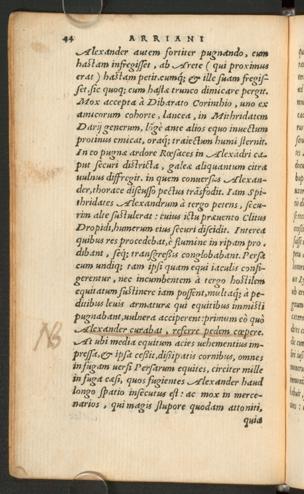 44 ARRIANI
Alexander autem fortiter pugnando, cum
hastam infregisset, ab Arete (qui proximus
erat) hastam petit. cumq́; & ille suam fregis-
set, sic quoq; cum hastæ trunco dimicare pergit.
Mox accepta à Dibarato Corinthio, uno ex
amicorum cohorte, lancea, in Mithridatem
Darij generum, lōgè ante alios equo inuectum
protinus emicat, oraq́; traiectum humi sternit.
In eo pugnæ ardore Rœsaces in Alexādri ca-
put securi districta, galeæ aliquantum citra
uulnus diffregit. in quem conuersus Alexan-
der, thorace discusso pectus trāsfodit. Iam Spi-
thridates Alexandrum à tergo petens, secu-
rim alte sustulerat: cuius ictū præuento Clitus
Dropidi, humerum eius securi discidit. Interea
equibus res procedebat, è flumine in ripam pro-
dibant, seq́; transgressus conglobabant. Persæ
cum undiq; tam ipsi quam equi iaculis confi-
gerentur, nec incumbentem à tergo hostilem
equitatum sustinere iam possent, multaq́; à pe-
ditibus leuis armaturæ qui equitibus immisti
pugnabant, uulnera acciperent: primum eò quò
Alexander curabat, referre pedem cœpere.
NB
At ubi media equitum acies uehementius im-
pressa, & ipsa cessit, dissipatis cornibus, omnes
in fugam uersi Persarum equites, circiter mille
in fuga cæsi, quos fugientes Alexander haud
longo spatio insecutus est: ac mox in merce-
narios, qui magis stupore quodam attoniti,
quia